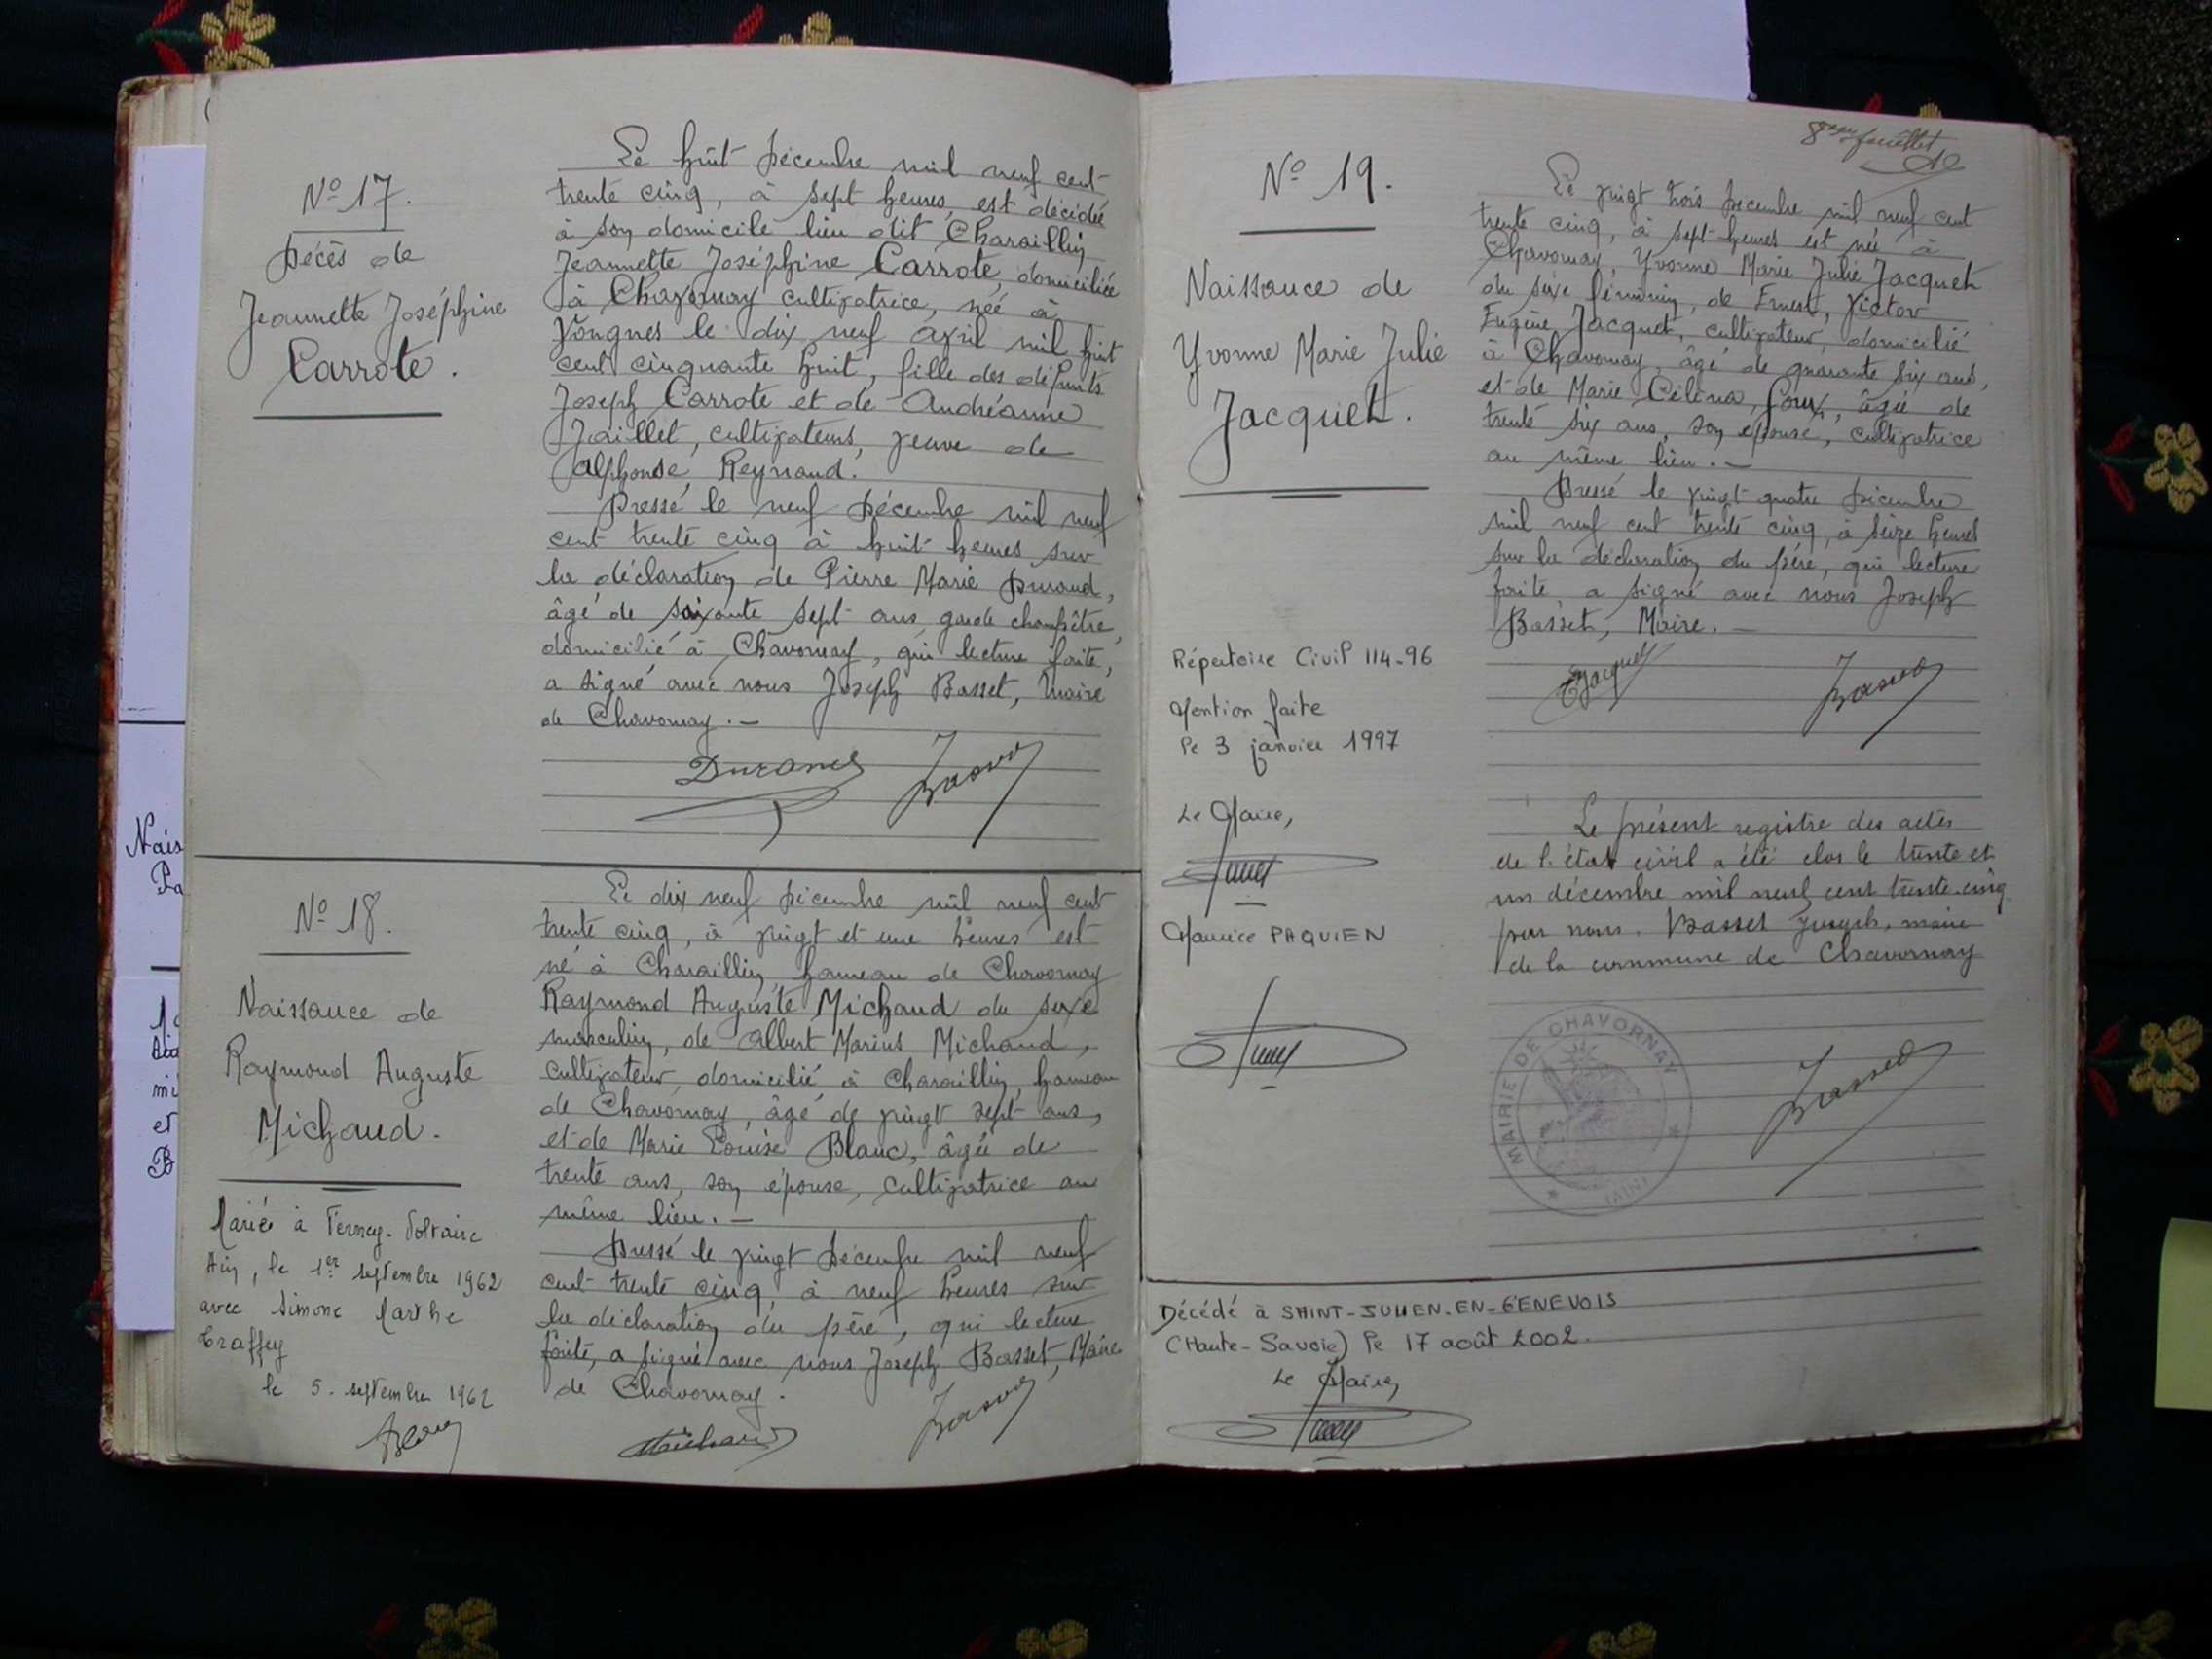 N° 17.
Décès de
Jeannette Joséphine
Carrote.
Le huit Décembre mil neuf cent
trente cinq, à sept heures, est décédée
à son domicile lieu dit Charaillin
Jeannette Joséphine Carrote, domiciliée
à Chavornay cultivatrice, née à
Vongnes le dix neuf avril mil huit
cent cinquante huit, fille des défunts
Joseph Carrote et de Andréanne
Jaillet, cultivateurs, veuve de
Alphonse Reynaud.
Dressé le neuf Décembre mil neuf
cent trente cinq à huit heures sur
la déclaration de Pierre Marie Durand,
âgé de soixante sept ans, garde champêtre,
domicilié à Chavornay, qui lecture faite,
a signé avec nous Joseph Basset, Maire
de Chavornay. —
Durand Basset
N° 18.
Naissance de
Raymond Auguste
Michaud.
Marié à Ferney-Voltaire
Ain, le 1er septembre 1962
avec Simone Marthe
le 5. septembre 1962
Le dix neuf Décembre mil neuf cent
trente cinq, à vingt et une heures est
né à Charaillin, hameau de Chavornay
Raymond Auguste Michaud du sexe
masculin, de Albert Marius Michaud,
cultivateur, domicilié à Charaillin, hameau
de Chavornay, âgé de vingt sept ans,
et de Marie Louise Blanc, âgée de
trente ans, son épouse, cultivatrice au
même lieu. —
Dressé le vingt Décembre mil neuf
cent trente cinq, à neuf heures sur
la déclaration du père, qui lecture
faite, a signé avec nous Joseph Basset, Maire
de Chavornay.
Michaud Basset
Nais
8eme feuillet
N° 19.
Naissance de
Yvonne Marie Julie
Jacquet.
Répertoire Civil 114-96
Mention faite
le 3 janvier 1997
Le Maire,
Maurice PAQUIEN
Le vingt trois Décembre mil neuf cent
trente cinq, à sept heures est née à
Chavornay, Yvonne Marie Julie Jacquet
du sexe féminin, de Ernest, Victor
Eugène Jacquet, cultivateur, domicilié
à Chavornay, âgé de quarante six ans,
et de Marie Célina, âgée de
trente six ans, son épouse, cultivatrice
au même lieu. —
Dressé le vingt quatre Décembre
mil neuf cent trente cinq, à seize heures
sur la déclaration du père, qui lecture
faite, a signé avec nous Joseph
Basset, Maire. —
EJacquet Basset
Le présent registre des actes
de l'état civil a été clos le trente et
un décembre mil neuf cent trente-cinq
par nous. Basset Joseph, maire
de la commune de Chavornay
MAIRIE DE CHAVORNAY
(AIN)
Basset
Décédé à SAINT-JULIEN-EN-GENEVOIS
(Haute-Savoie) le 17 août 2002.
Le Maire,